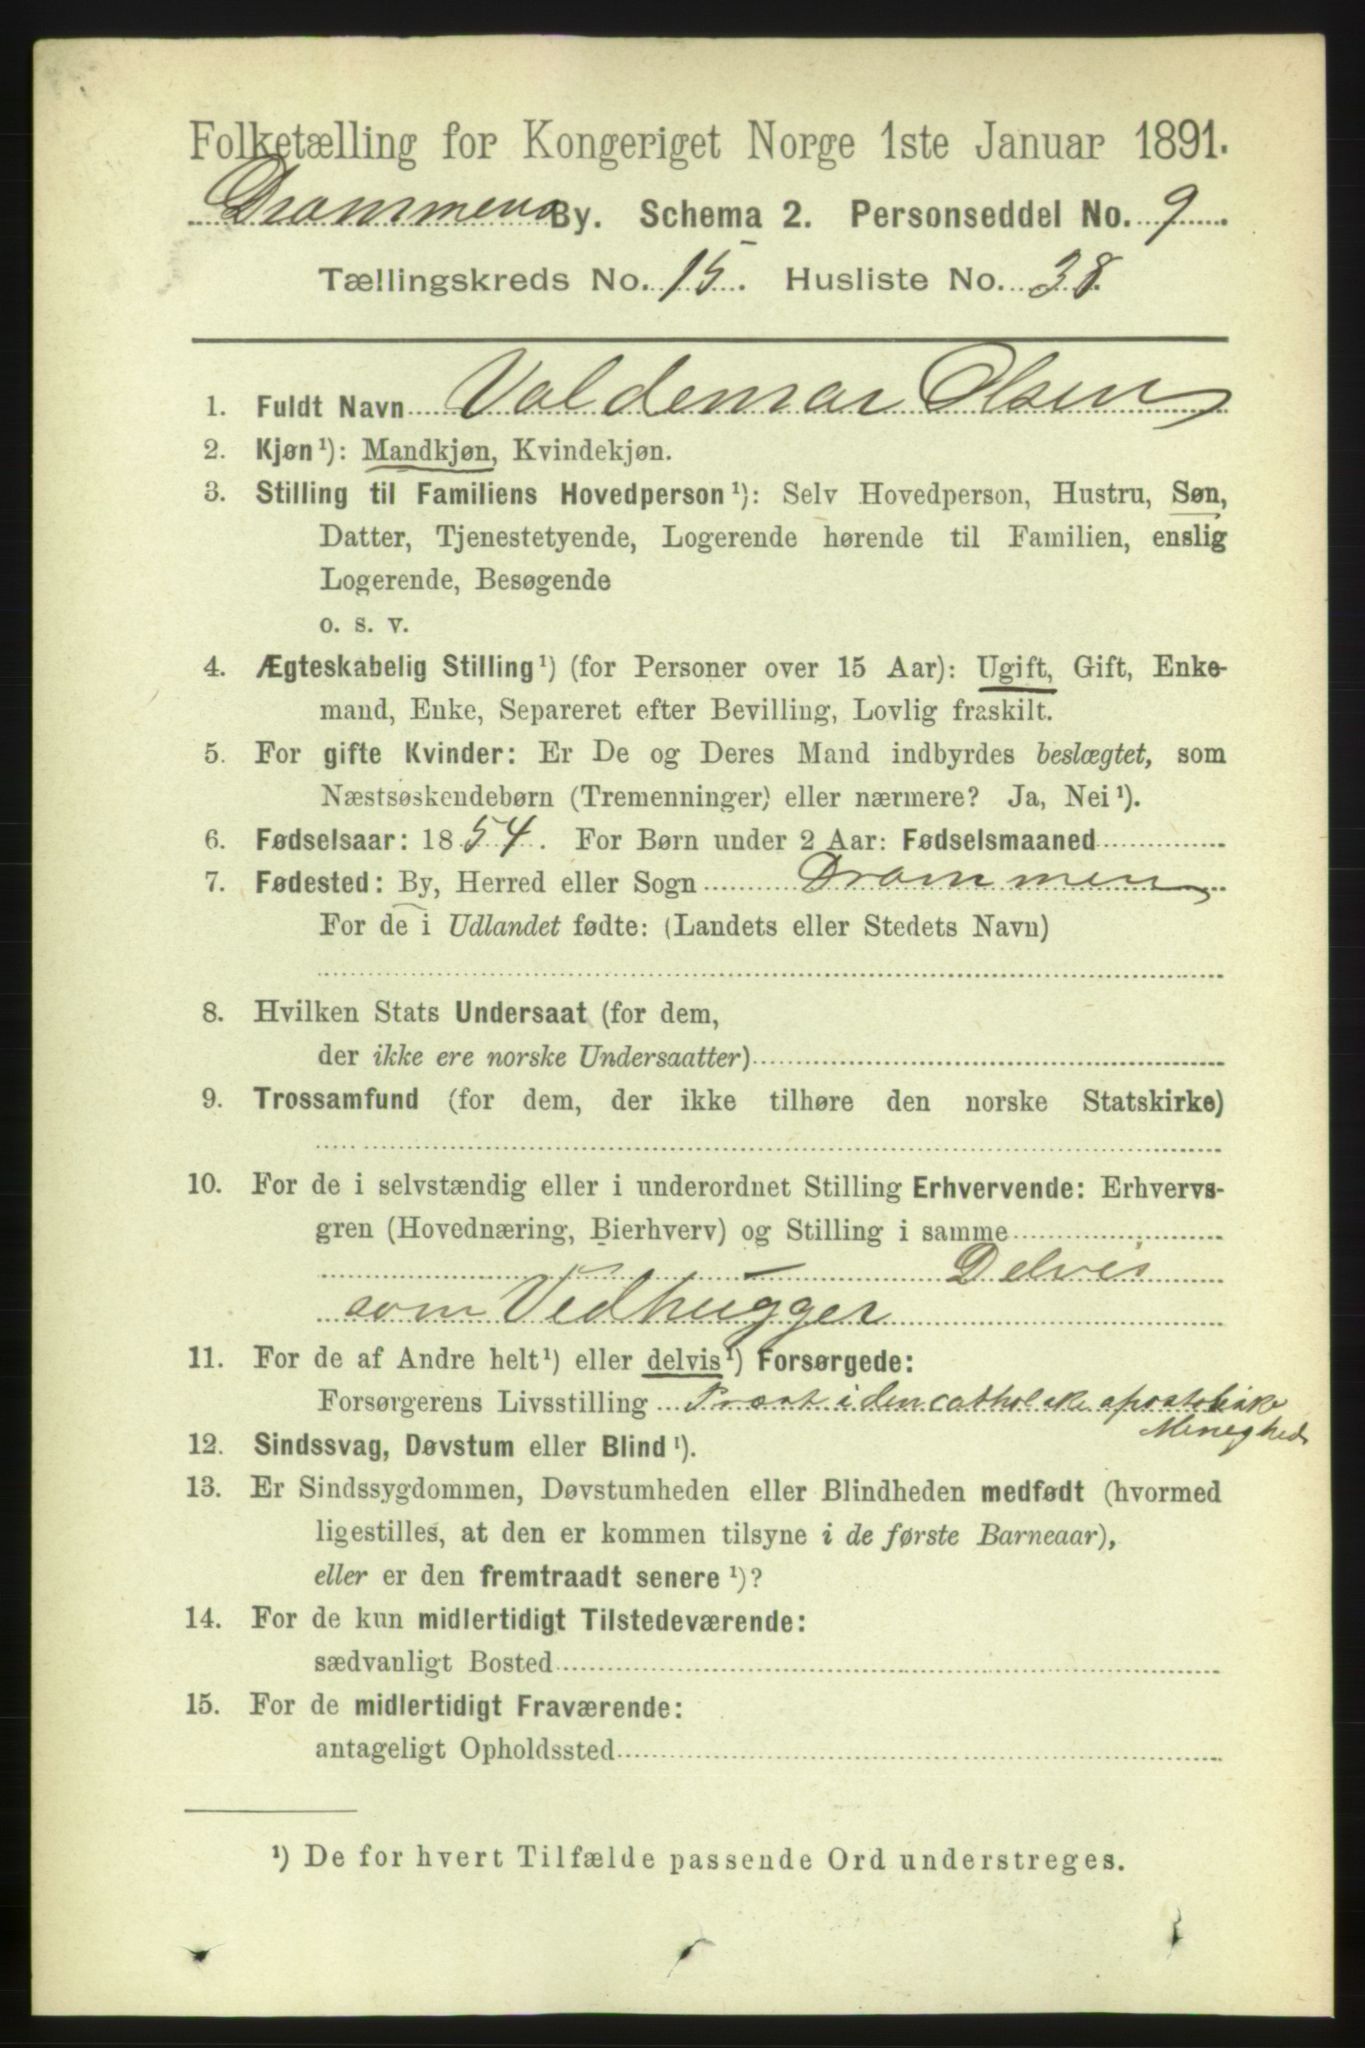 Folketælling for Kongeriget Norge 1ste Januar 1891.
Drammens By. Schema 2. Personseddel No. 9
Tællingskreds No. 15. Husliste No. 38
1. Fuldt Navn Valdemar Olsen
2. Kjøn¹): Mandkjøn, Kvindekjøn.
3. Stilling til Familiens Hovedperson¹): Selv Hovedperson, Hustru, Søn,
Datter, Tjenestetyende, Logerende hørende til Familien, enslig
Logerende, Besøgende
o. s. v.
4. Ægteskabelig Stilling¹) (for Personer over 15 Aar): Ugift, Gift, Enke-
mand, Enke, Separeret efter Bevilling, Lovlig fraskilt.
5. For gifte Kvinder: Er De og Deres Mand indbyrdes beslægtet, som
Næstsøskendebørn (Tremenninger) eller nærmere? Ja, Nei¹).
6. Fødselsaar: 1854. For Børn under 2 Aar: Fødselsmaaned
7. Fødested: By, Herred eller Sogn Drammen
For de i Udlandet fødte: (Landets eller Stedets Navn)
8. Hvilken Stats Undersaat (for dem,
der ikke ere norske Undersaatter)
9. Trossamfund (for dem, der ikke tilhøre den norske Statskirke)
10. For de i selvstændig eller i underordnet Stilling Erhvervende: Erhvervs-
gren (Hovednæring, Bierhverv) og Stilling i samme
Delvis
som Vedhugger
11. For de af Andre helt¹) eller delvis¹) Forsørgede:
Forsørgerens Livsstilling Præst i den catholske apostoliske
Menighed
12. Sindssvag, Døvstum eller Blind¹).
13. Er Sindssygdommen, Døvstumheden eller Blindheden medfødt (hvormed
ligestilles, at den er kommen tilsyne i de første Barneaar),
eller er den fremtraadt senere¹)?
14. For de kun midlertidigt Tilstedeværende:
sædvanligt Bosted
15. For de midlertidigt Fraværende:
antageligt Opholdssted
¹) De for hvert Tilfælde passende Ord understreges.